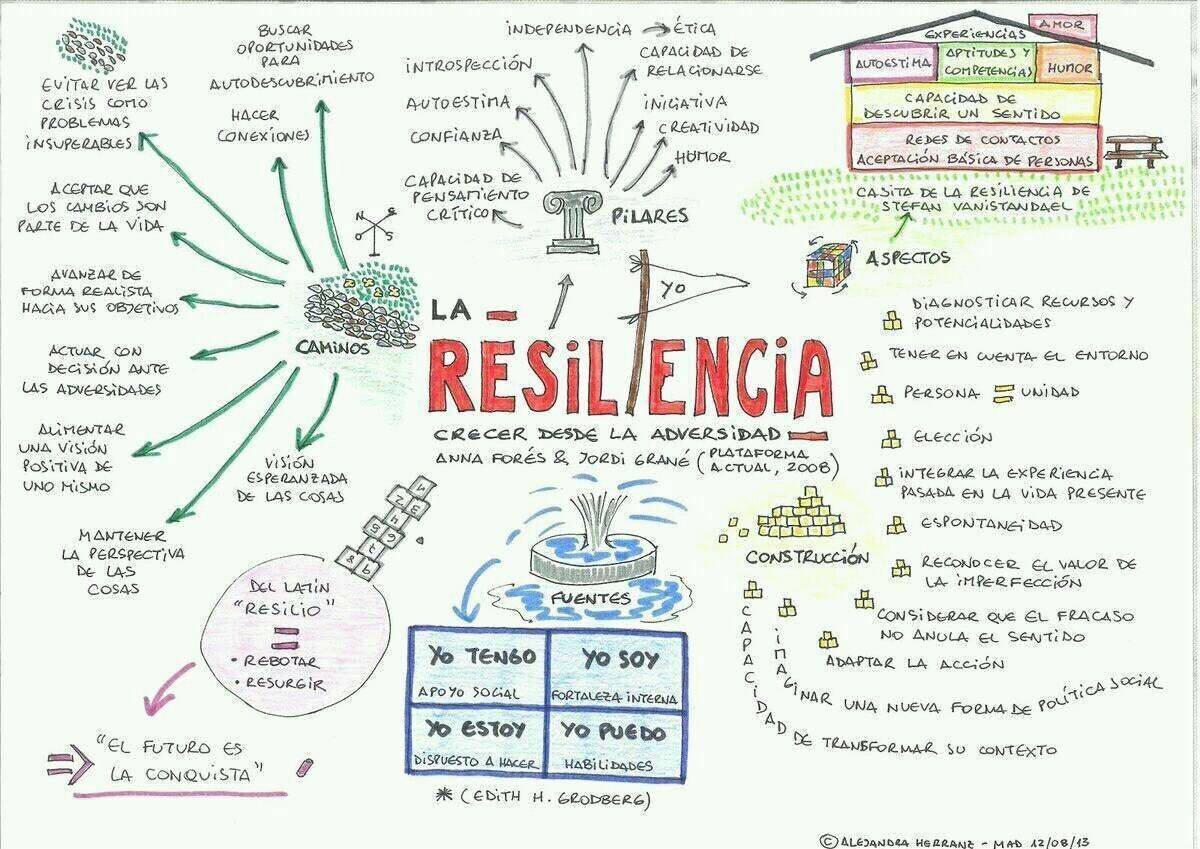 LA
RESILIENCIA
YO
CRECER DESDE LA ADVERSIDAD
ANNA FORÉS & JORDI GRANÉ (PLATAFORMA
ACTUAL, 2008)
CAMINOS
N
S
E
EVITAR VER LAS
CRISIS COMO
PROBLEMAS
INSUPERABLES
BUSCAR
OPORTUNIDADES
PARA
AUTODESCUBRIMIENTO
HACER
CONEXIONES
ACEPTAR QUE
LOS CAMBIOS SON
PARTE DE LA VIDA
AVANZAR DE
FORMA REALISTA
HACIA SUS OBJETIVOS
ACTUAR CON
DECISIÓN ANTE
LAS ADVERSIDADES
ALIMENTAR
UNA VISIÓN
POSITIVA DE
UNO MISMO
MANTENER
LA PERSPECTIVA
DE LAS
COSAS
VISIÓN
ESPERANZADA
DE LAS COSAS
PILARES
INDEPENDENCIA → ÉTICA
INTROSPECCIÓN
AUTOESTIMA
CONFIANZA
CAPACIDAD DE
PENSAMIENTO
CRÍTICO
CAPACIDAD DE
RELACIONARSE
INIGATIVA
CREATIVIDAD
HUMOR
AMOR
EXPERIENCIAS
AUTOESTIMA
APTITUDES Y
COMPETENCIAS
HUMOR
CAPACIDAD DE
DESCUBRIR UN SENTIDO
REDES DE CONTACTOS
ACEPTACIÓN BÁSICA DE PERSONAS
CASITA DE LA RESILIENCIA DE
STEFAN VANISTANDAEL
ASPECTOS
DIAGNOSTICAR RECURSOS Y
POTENCIALIDADES
TENER EN CUENTA EL ENTORNO
PERSONA = UNIDAD
ELECCIÓN
INTEGRAR LA EXPERIENCIA
PASADA EN LA VIDA PRESENTE
ESPONTANEIDAD
RECONOCER EL VALOR DE
LA IMPERFECCIÓN
CONSIDERAR QUE EL FRACASO
NO ANULA EL SENTIDO
ADAPTAR LA ACCIÓN
IMAGINAR UNA NUEVA FORMA DE POLÍTICA SOCIAL
CAPACIDAD DE TRANSFORMAR SU CONTEXTO
CONSTRUCCIÓN
FUENTES
YO TENGO
APOYO SOCIAL
YO SOY
FORTALEZA INTERNA
YO ESTOY
DISPUESTO A HACER
YO PUEDO
HABILIDADES
* (EDITH H. GRODBERG)
1
2 3
4
5 6
7
8 9
DEL LATÍN
"RESILIO"
=
• REBOTAR
• RESURGIR
"EL FUTURO ES
LA CONQUISTA"
© ALEJANDRA HERRANZ - MAD 12/08/13